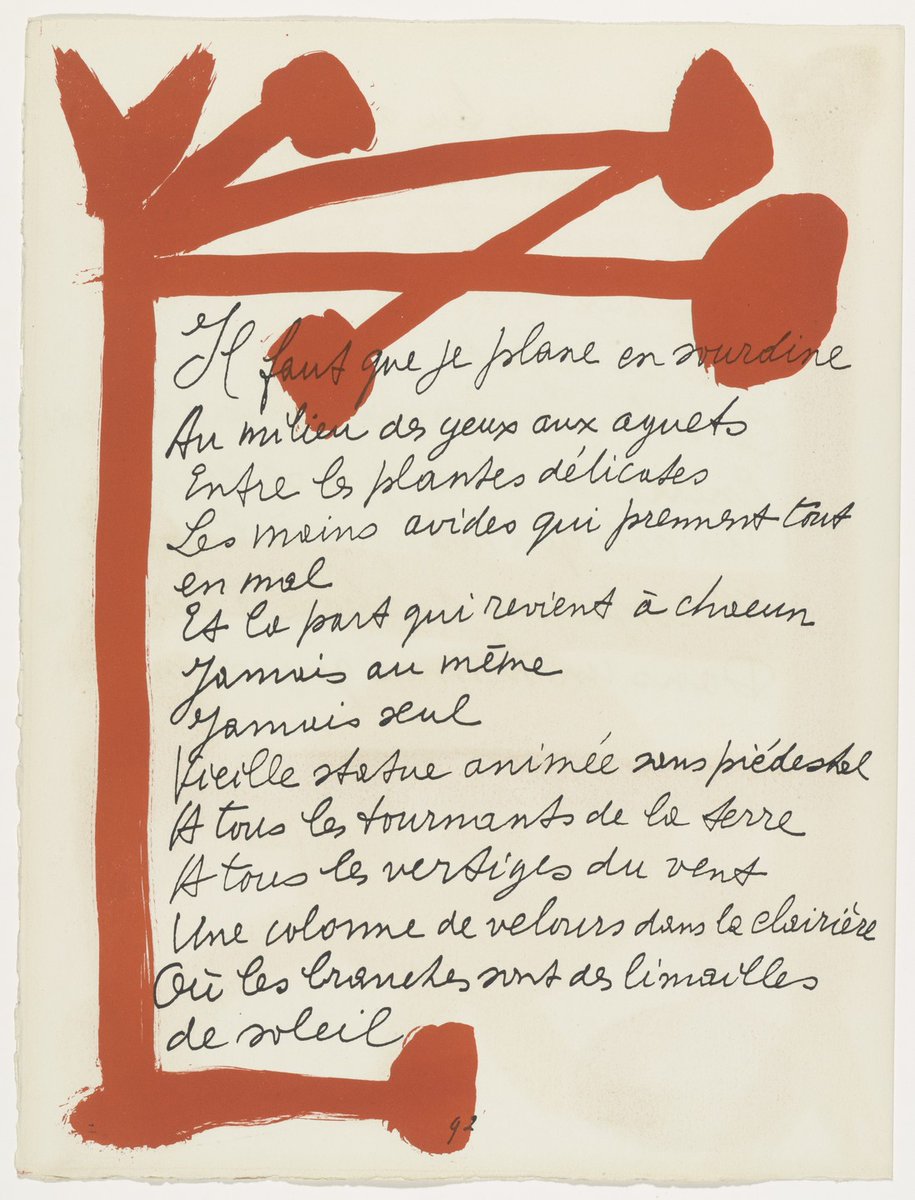 Il faut que je plane en sourdine
Au milieu des yeux aux aguets
Entre les plantes délicates
Les mains avides qui prennent tout
en mal
Et la part qui revient à chacun
Jamais au même
Jamais seul
Vieille statue animée sans piédestal
A tous les tournants de la terre
A tous les vertiges du vent
Une colonne de velours dans la clairière
Où les branches sont des limailles
de soleil
92